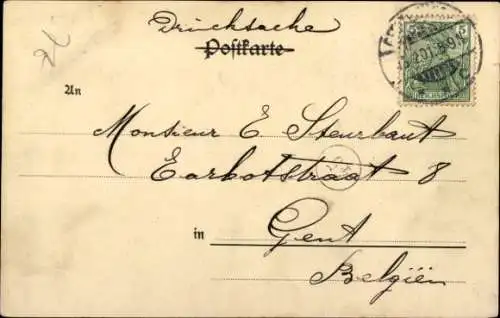 Drucksache
Postkarte
An
Monsieur E Steurbaut
Earbotstraat 8
in Gent
Belgiën